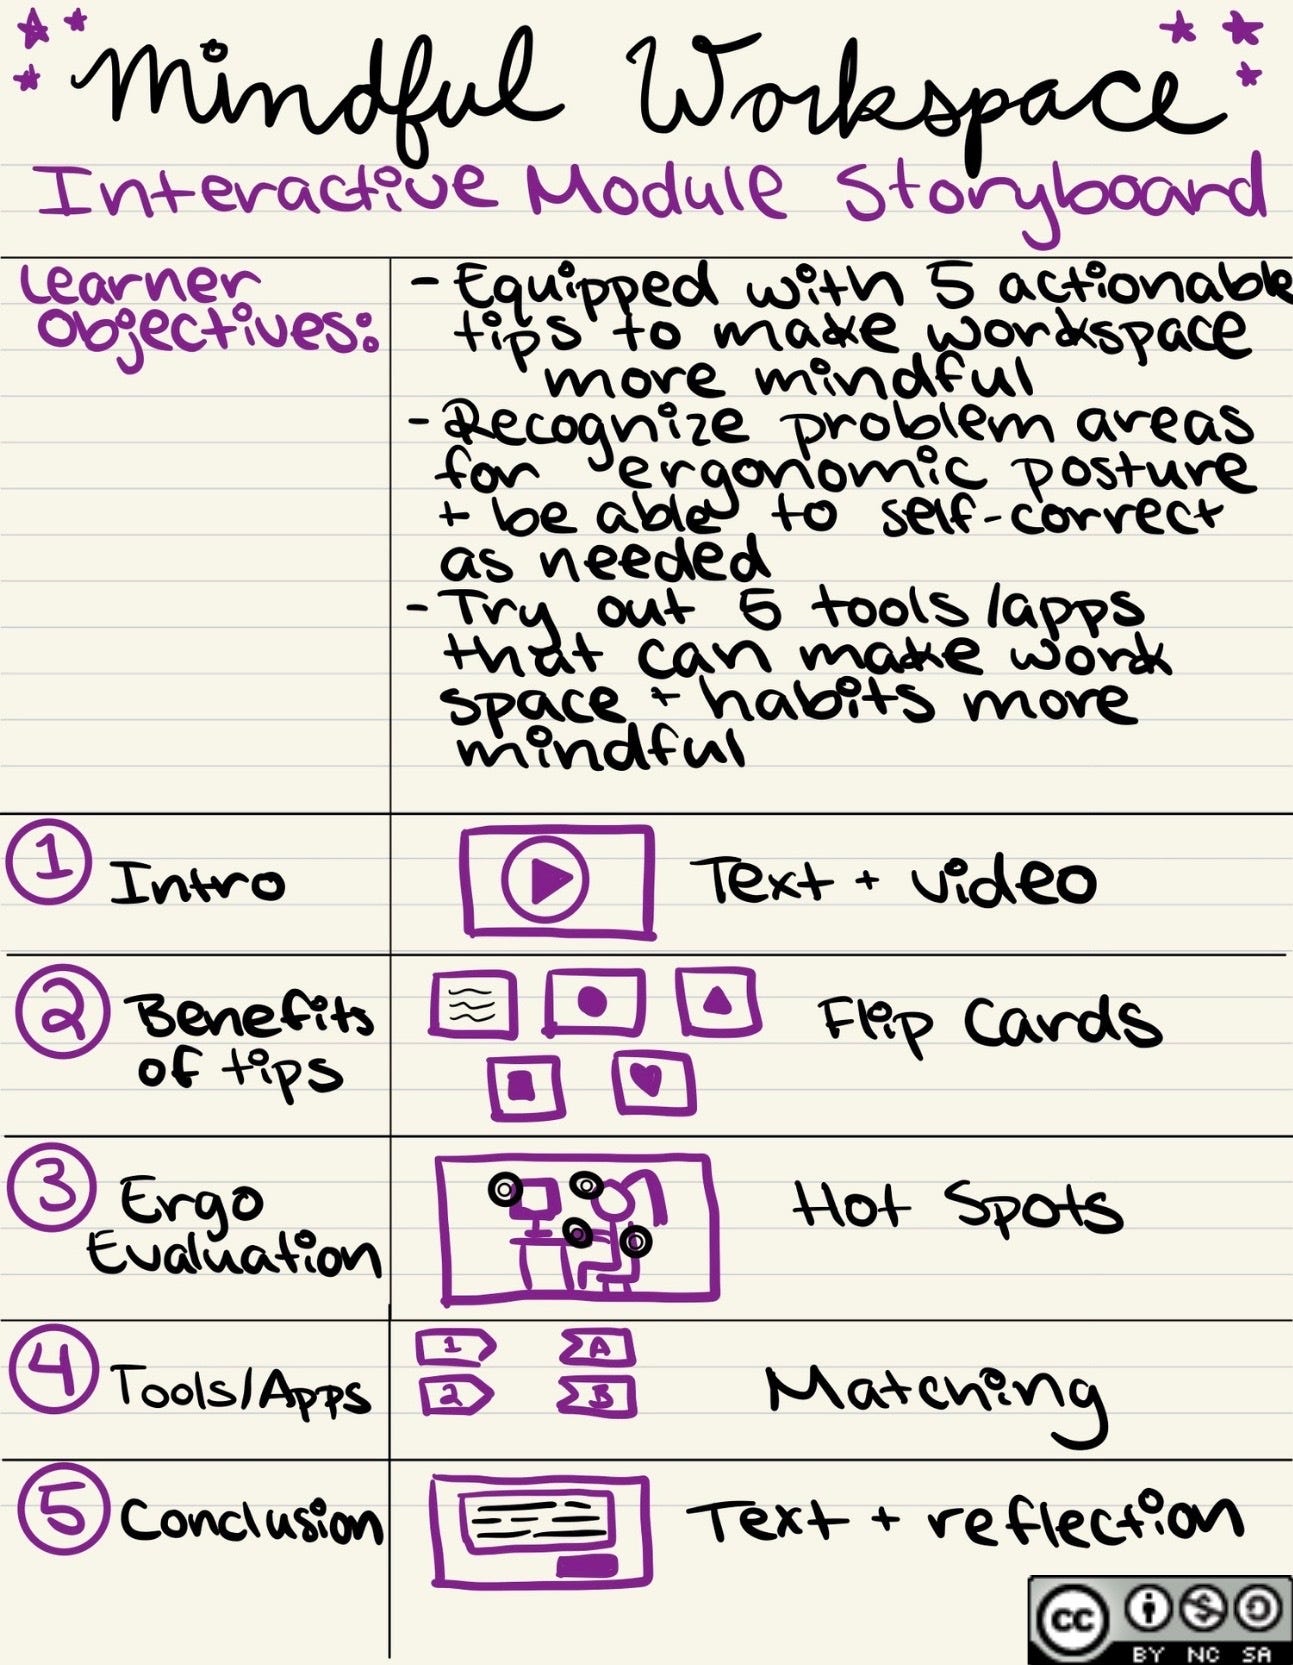 Mindful Workspace
Interactive Module Storyboard
Learner
Objectives:
- Equipped with 5 actionable
tips to make workspace
more mindful
- Recognize problem areas
for ergonomic posture
+ be able to self-correct
as needed
- Try out 5 tools/apps
that can make work
space + habits more
mindful
1 Intro
Text + video
2 Benefits
of tips
Flip Cards
3 Ergo
Evaluation
Hot Spots
4 Tools/Apps
1 A
2 B
Matching
5 Conclusion
Text + reflection
CC BY NC SA